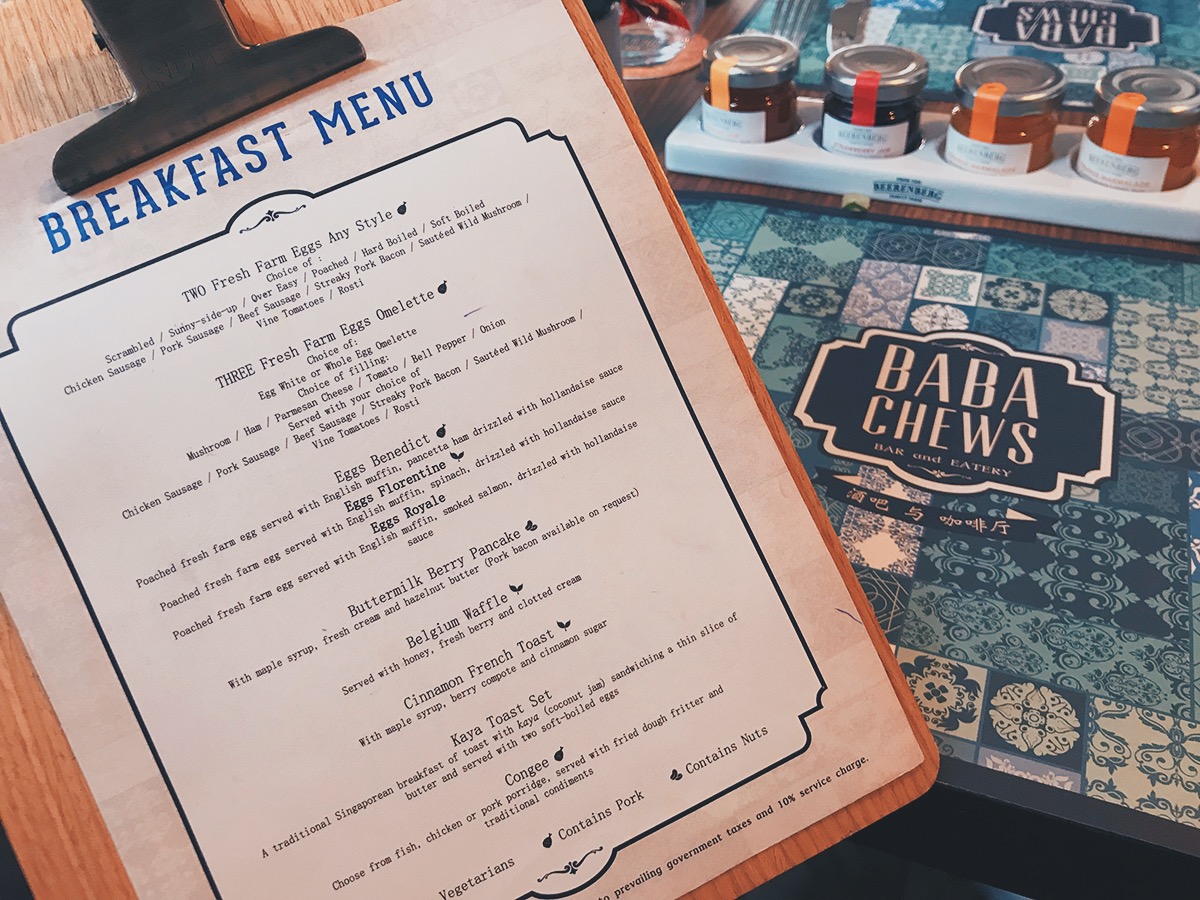 BREAKFAST MENU
TWO Fresh Farm Eggs Any Style
Choice of :
Scrambled / Sunny-side-up / Over Easy / Poached / Hard Boiled / Soft Boiled
Chicken Sausage / Pork Sausage / Beef Sausage / Streaky Pork Bacon / Sautéed Wild Mushroom /
Vine Tomatoes / Rosti
THREE Fresh Farm Eggs Omelette
Choice of:
Egg White or Whole Egg Omelette
Choice of filling:
Mushroom / Ham / Parmesan Cheese / Tomato / Bell Pepper / Onion
Served with your choice of
Chicken Sausage / Pork Sausage / Beef Sausage / Streaky Pork Bacon / Sautéed Wild Mushroom /
Vine Tomatoes / Rosti
Eggs Benedict
Poached fresh farm egg served with English muffin, pancetta ham drizzled with hollandaise sauce
Eggs Florentine
Poached fresh farm egg served with English muffin, spinach, drizzled with hollandaise sauce
Eggs Royale
Poached fresh farm egg served with English muffin, smoked salmon, drizzled with hollandaise
sauce
Buttermilk Berry Pancake
With maple syrup, fresh cream and hazelnut butter (Pork bacon available on request)
Belgium Waffle
Served with honey, fresh berry and clotted cream
Cinnamon French Toast
With maple syrup, berry compote and cinnamon sugar
Kaya Toast Set
A traditional Singaporean breakfast of toast with kaya (coconut jam) sandwiching a thin slice of
butter and served with two soft-boiled eggs
Congee
Choose from fish, chicken or pork porridge, served with fried dough fritter and
traditional condiments
Vegetarians
Contains Pork
Contains Nuts
to prevailing government taxes and 10% service charge.
BABA
CHEWS
BEERENBERG
BEERENBERG
STRAWBERRY JAM
BEERENBERG
BEERENBERG
BEERENBERG
BABA
CHEWS
BAR and EATERY
酒吧 与 咖啡厅